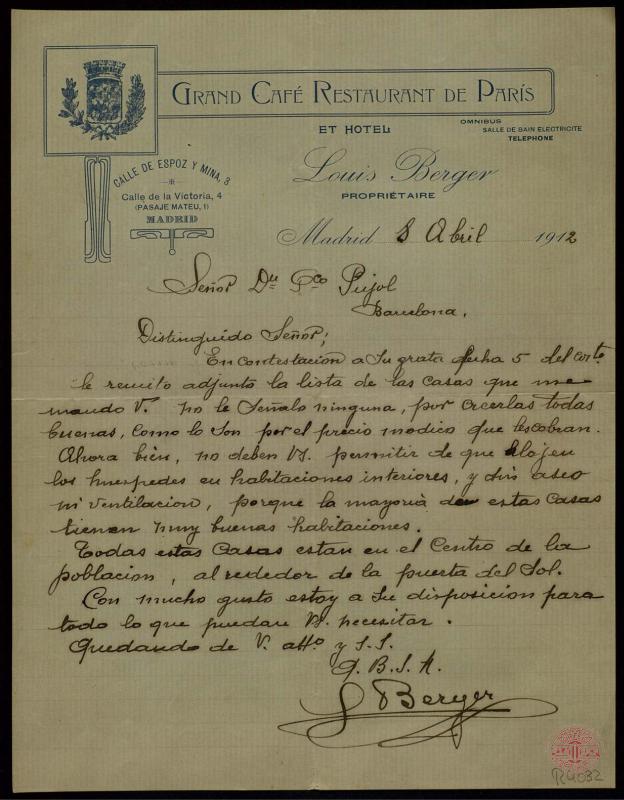 GRAND CAFÉ RESTAURANT DE PARÍS
ET HOTEL
OMNIBUS
SALLE DE BAIN ELECTRICITE
TELEPHONE
CALLE DE ESPOZ Y MINA, 3
Calle de la Victoria, 4
(PASAJE MATEU, 1)
MADRID
Louis Berger
PROPRIÉTAIRE
Madrid 8 Abril 1912
Señor Dn Fco Pujol
Barcelona,
Distinguido Señor;
En contestacion a Su grata fecha 5 del corte
le remito adjunto la lista de las casas que me
mando V. no le Señalo ninguna, por creerlas todas
buenas, como lo Son por el precio modico que les cobran.
Ahora bien, no deben VS. permitir de que alojen
los huespedes en habitaciones interiores, y sin aseo
ni ventilacion, porque la mayoria de estas Casas
tienen muy buenas habitaciones.
Todas estas Casas estan en el Centro de la
poblacion, al rededor de la puerta del Sol.
Con mucho gusto estoy a Su disposicion para
todo lo que puedan VS. necesitar.
Quedando de V. atto. y S.S.
Q.B.S.M.
L Berger
R4032